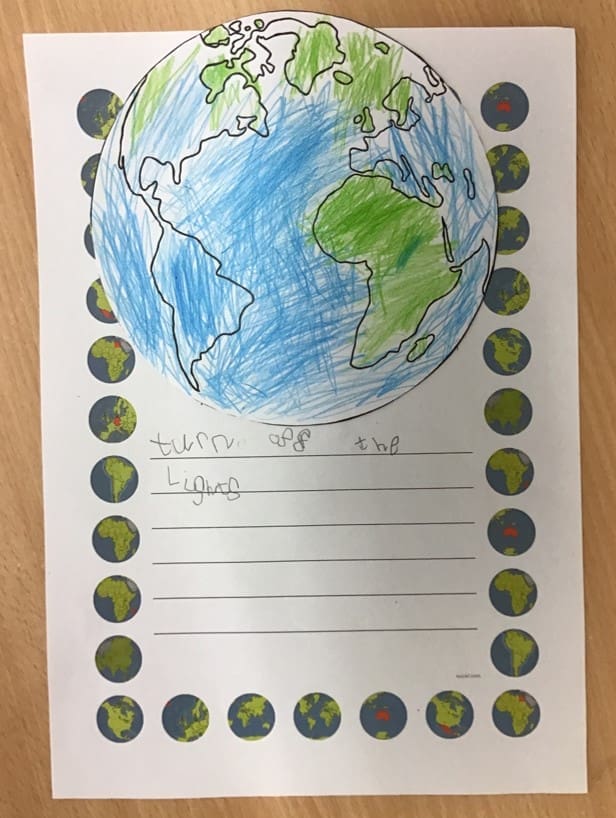 turn off the
Lights